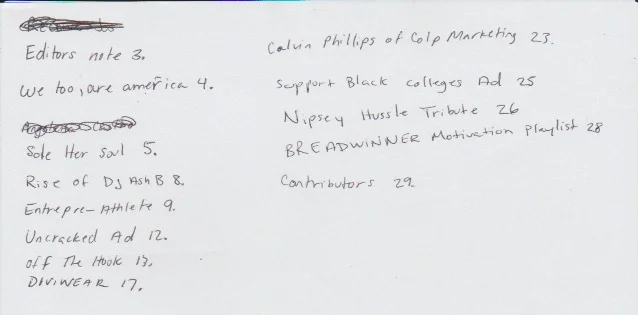 Editors note 3.
We too, are america 4.
Sole Her Soul 5.
Rise of DJ Ash B 8.
Entrepre-Athlete 9.
Uncracked Ad 12.
Off The Hook
DIVIWEAR 17.
Calvin Phillips of Colp Marketing 23.
Support Black colleges Ad 25
Nipsey Hussle Tribute 26
BREADWINNER Motivation Playlist 28
Contributors 29.